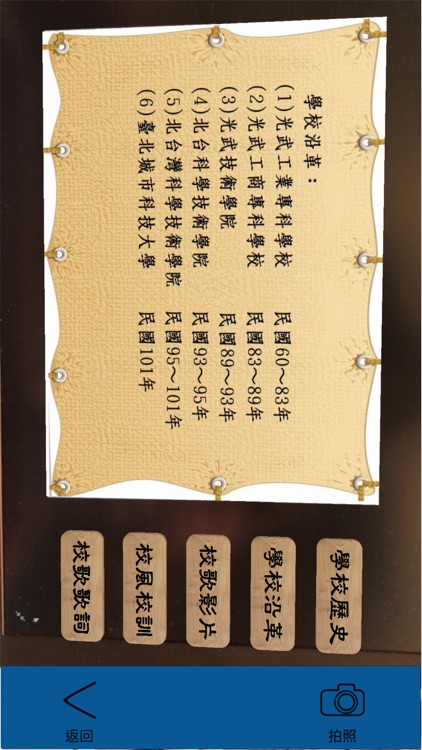 學校沿革：
(1)光武工業專科學校 民國60～83年
(2)光武工商專科學校 民國83～89年
(3)光武技術學院 民國89～93年
(4)北台科學技術學院 民國93～95年
(5)北台灣科學技術學院 民國95～101年
(6)臺北城市科技大學 民國101年
學校歷史
學校沿革
校歌影片
校風校訓
校歌歌詞
返回
拍照